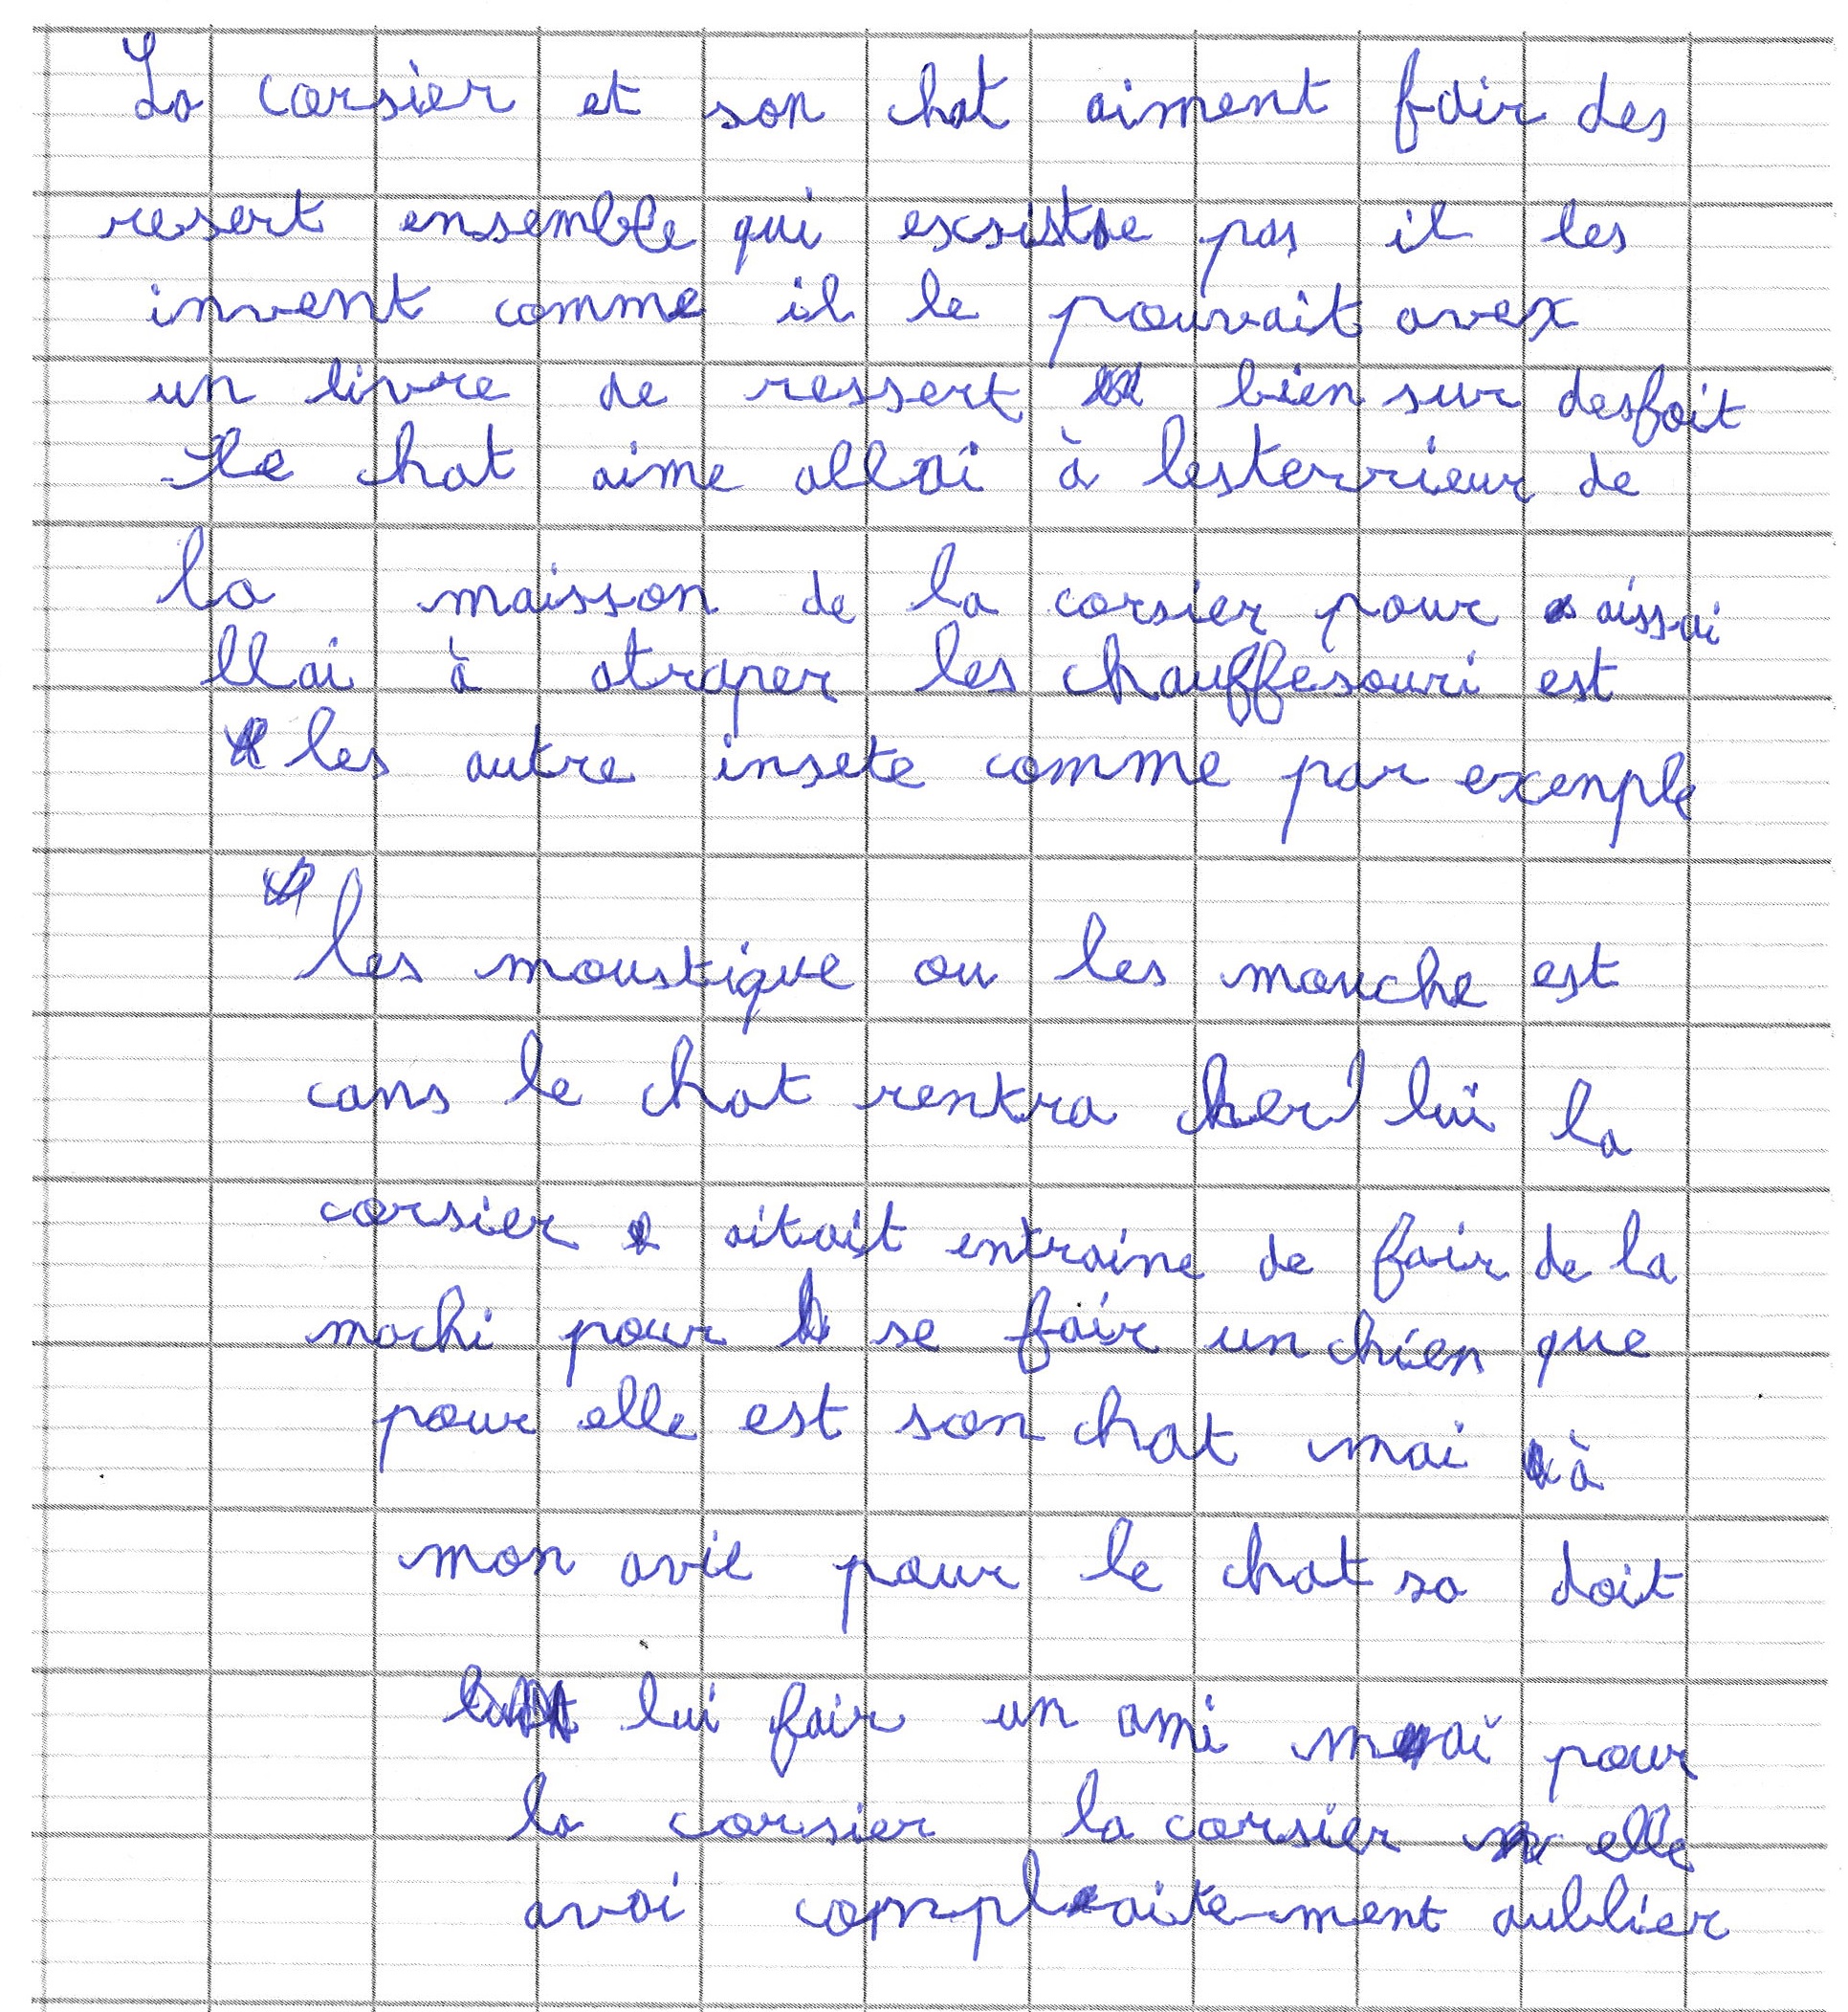 La corsier et son chat aiment fair des
resert ensemble qui exsiste pas il les
invent comme il le pouvait avex
un livre de ressert bien sur desfoit
le chat aime allai à lesterrieur de
la maisson de la corsier pour aissai
llai à atraper les chauffesouri est
les autre insete comme par exenple
les moustique ou les mouche est
cans le chat rentra cher lui la
corsier aitait entraine de fair de la
machi pour se fair un chien que
pour elle est son chat mai à
mon avie pour le chat sa doit
lui fair un ami mai pour
la corsier la corsier elle
avai complaitement aublier